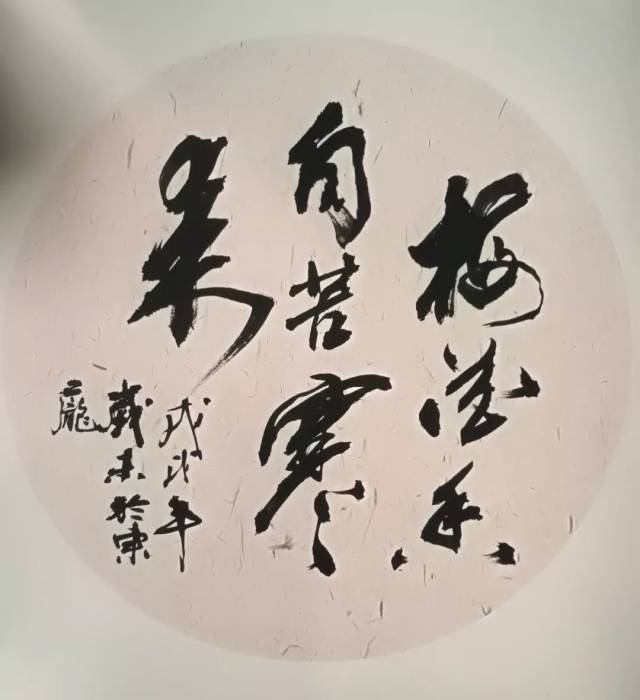 梅花香
自苦寒
来
戊戌年
歲末於東
龐